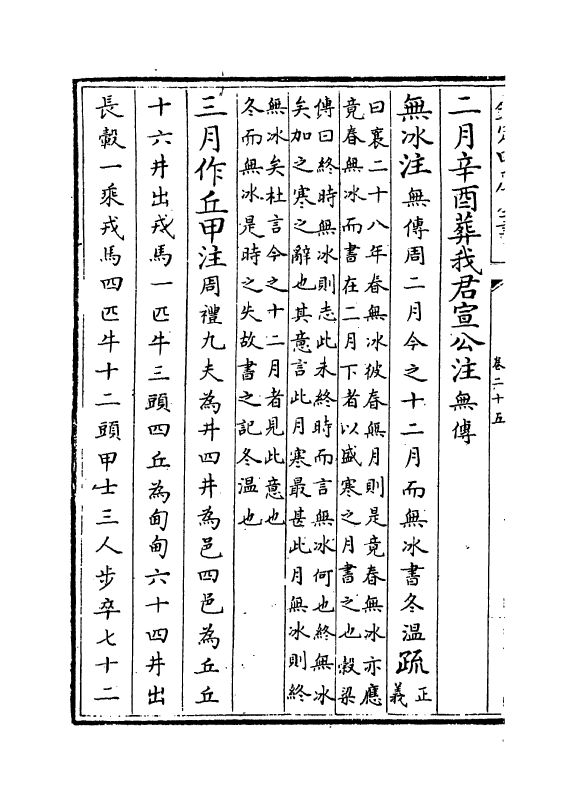 卷二十五
二月辛酉葬我君宣公注無傳
無冰注無傳周二月今之十二月而無冰書冬溫疏正義
曰襄二十八年春無冰彼春無月則是竟春無冰亦應
竟春無冰而書在二月下者以盛寒之月書之也榖梁
傳曰終時無冰則志此未終時而言無冰何也終無冰
矣加之寒之辭也其意言此月寒最甚此月無冰則終
無冰矣杜言今之十二月者見此意也
冬而無冰是時之失故書之記冬溫也
三月作丘甲注周禮九夫為井四井為邑四邑為丘丘
十六井出戎馬一匹牛三頭四丘為甸甸六十四井出
長轂一乘戎馬四匹牛十二頭甲士三人步卒七十二